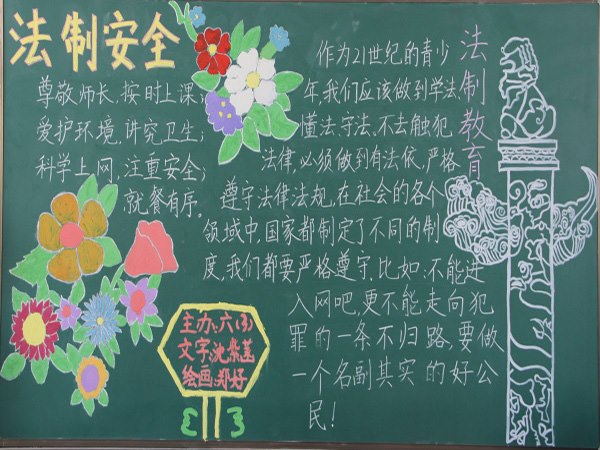 法制安全
尊敬师长,按时上课;
爱护环境,讲究卫生;
科学上网,注重安全;
就餐有序。
法制教育
作为21世纪的青少
年,我们应该做到学法,
懂法,守法。不去触犯
法律,必须做到有法依,严格
遵守法律法规,在社会的各个
领域中,国家都制定了不同的制
度,我们都要严格遵守,比如:不能进
入网吧,更不能走向犯
罪的一条不归路,要做
一个名副其实的好公
民!
主办:六(3)
文字:沈
绘画:郑好